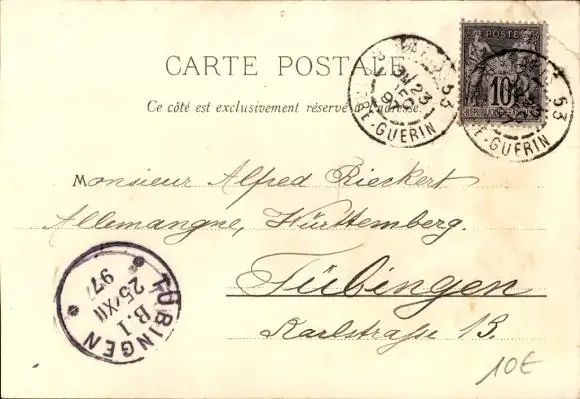 CARTE POSTALE
Ce côté est exclusivement réservé à l'adresse
POSTE
10
RÉPUBLIQUE FRANÇAISE
23
DEC
97
53
GUERIN
53
GUERIN
Monsieur Alfred Rieckert
Allemangne, Württemberg.
Tübingen
Karlstraße 13.
TÜBINGEN
B.I
25/XII
97
10€